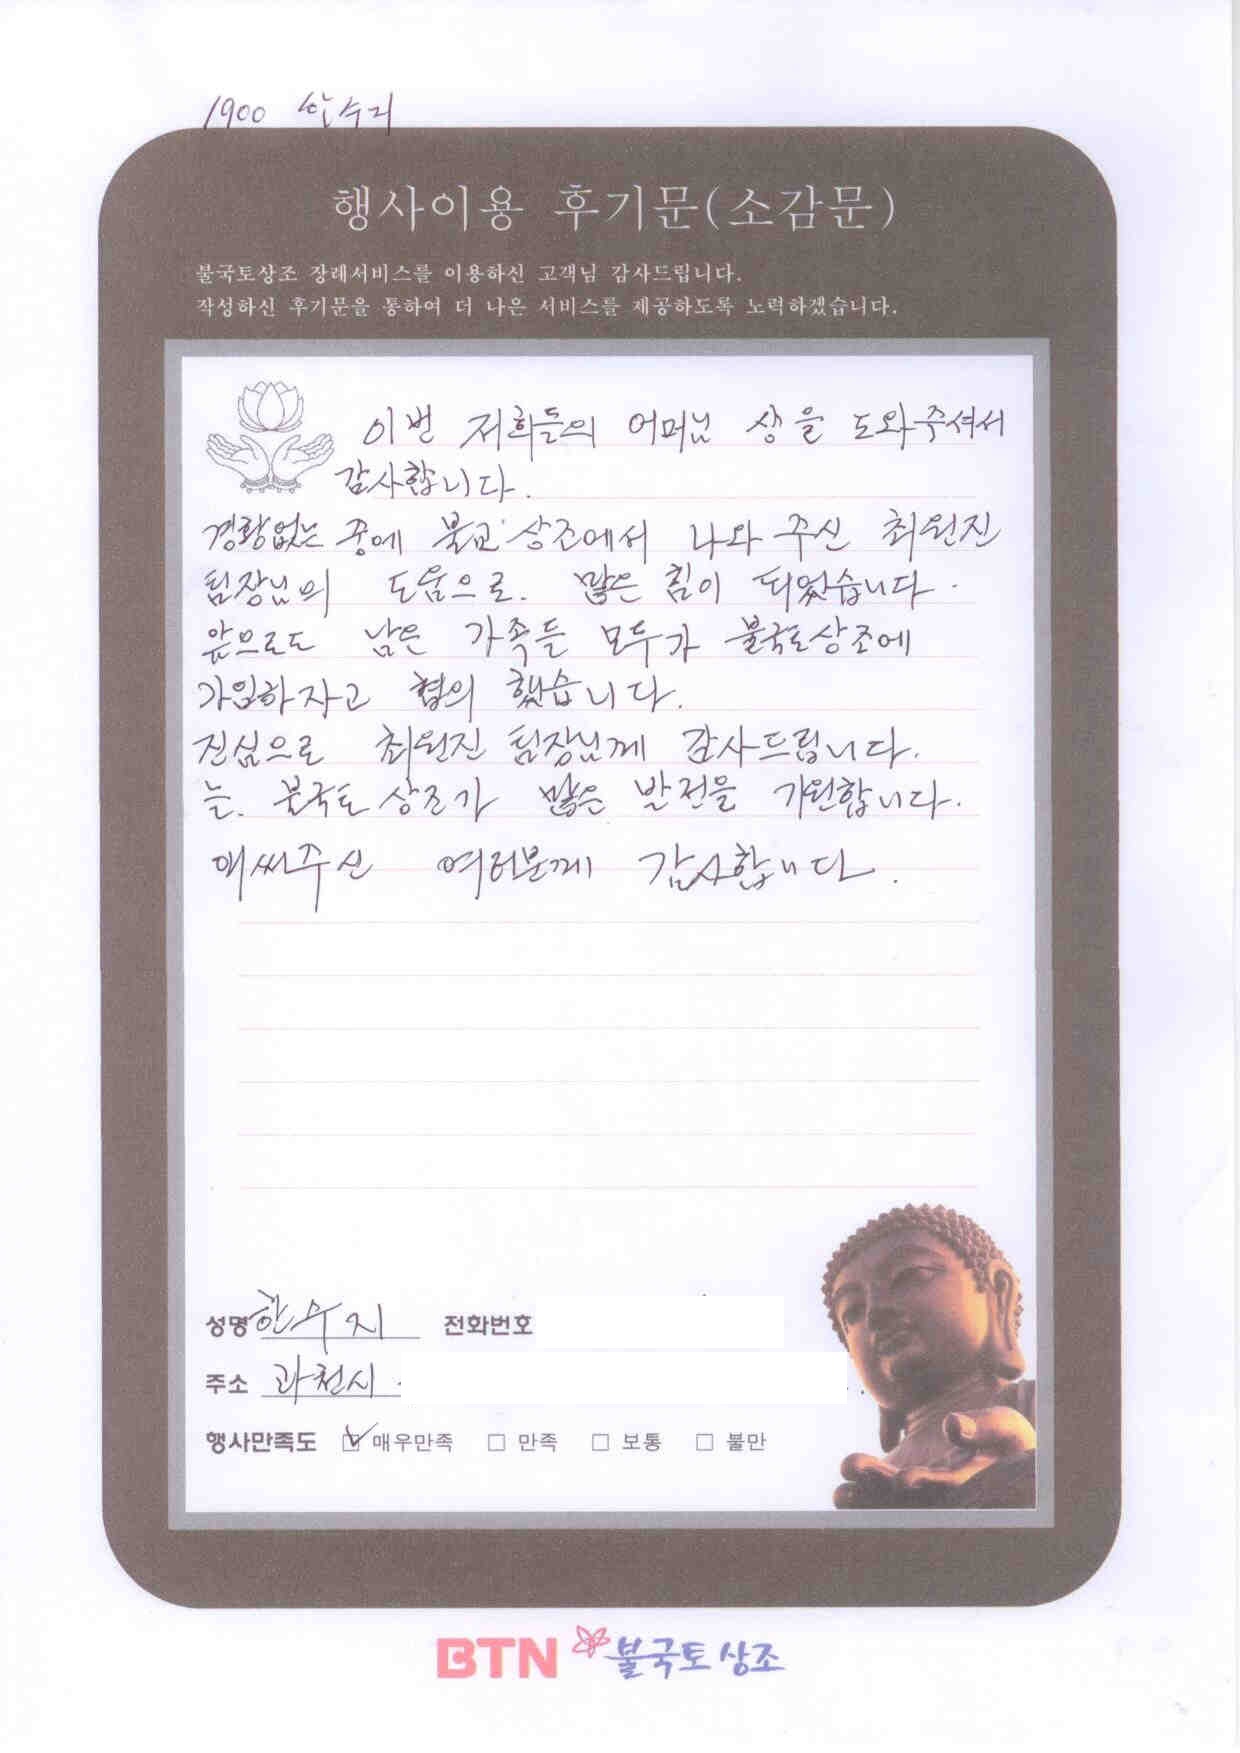 1900 한수지
행사이용 후기문(소감문)
불국토상조 장례서비스를 이용하신 고객님 감사드립니다.
작성하신 후기문을 통하여 더 나은 서비스를 제공하도록 노력하겠습니다.
이번 저희들의 어머님 상을 도와주셔서
감사합니다.
경황없는 중에 불교상조에서 나와 주신 최원진
팀장님의 도움으로. 많은 힘이 되었습니다.
앞으로도 남은 가족들 모두가 불국토상조에
가입하자고 협의 했습니다.
진심으로 최원진 팀장님께 감사드립니다.
늘. 불국토상조가 많은 발전을 기원합니다.
애써주신 여러분께 감사합니다.
성명 한수지 전화번호
주소 과천시.
행사만족도 매우만족 만족 보통 불만
BTN 불국토상조